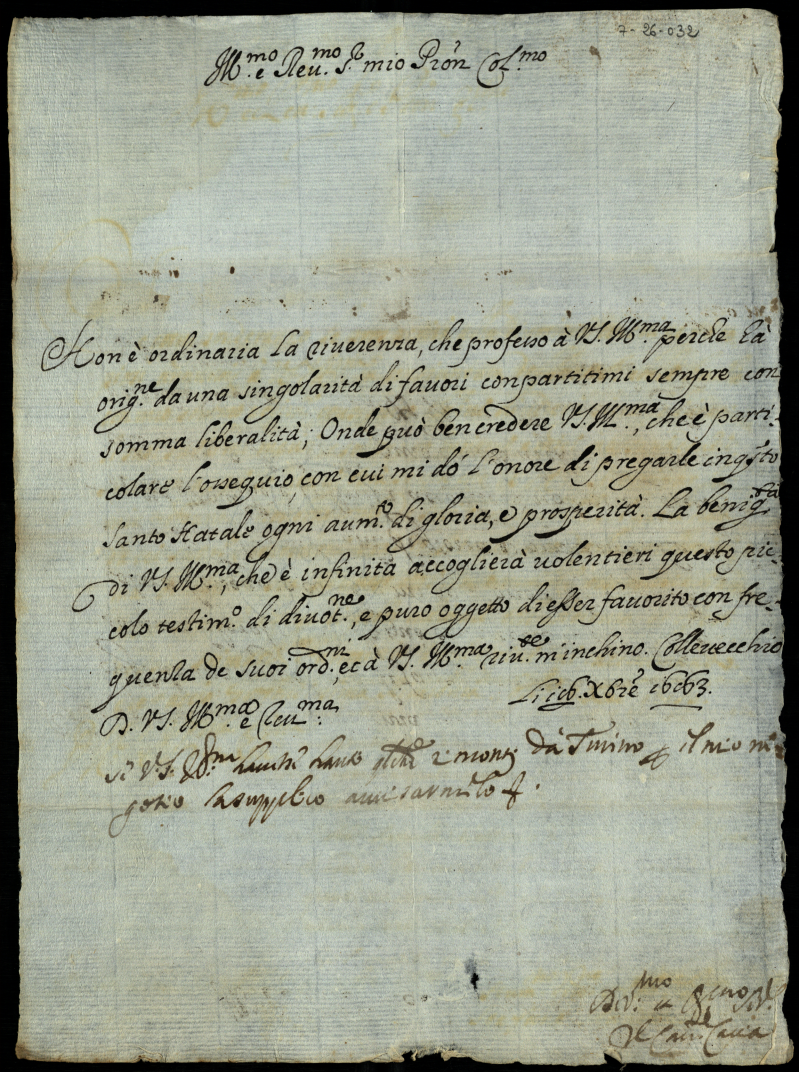 7-26-032
Ill.mo e Reu.mo S.r mio Pròn Col.mo
Non è ordinaria la riuerenza, che professo à VS. Ill.ma perche hà
orig.ne da una singolarità di fauori conpartitimi sempre con
somma liberalità; Onde può ben credere VS. Ill.ma, che è parti-
colare l'ossequio, con cui mi dó l'onore di pregarle in q.sto
santo Natale ogni aum.to di gloria, e prosperità. La benig.tà
di VS. Ill.ma, che è infinita accoglierà uolentieri questo pic-
colo testim.o di diuot.ne, e puro oggetto di esser fauorito con fre-
quenza de suoi ord.ni, ec à VS. Ill.ma riu.te m'inchino. Colleuecchio
D. VS. Ill.ma e Reu.ma Li 16. Xbre 1663.
Se VS. Ill.ma da Turino il mio ne-
gotio la supplico auisarmelo
Deu.mo et Ser.